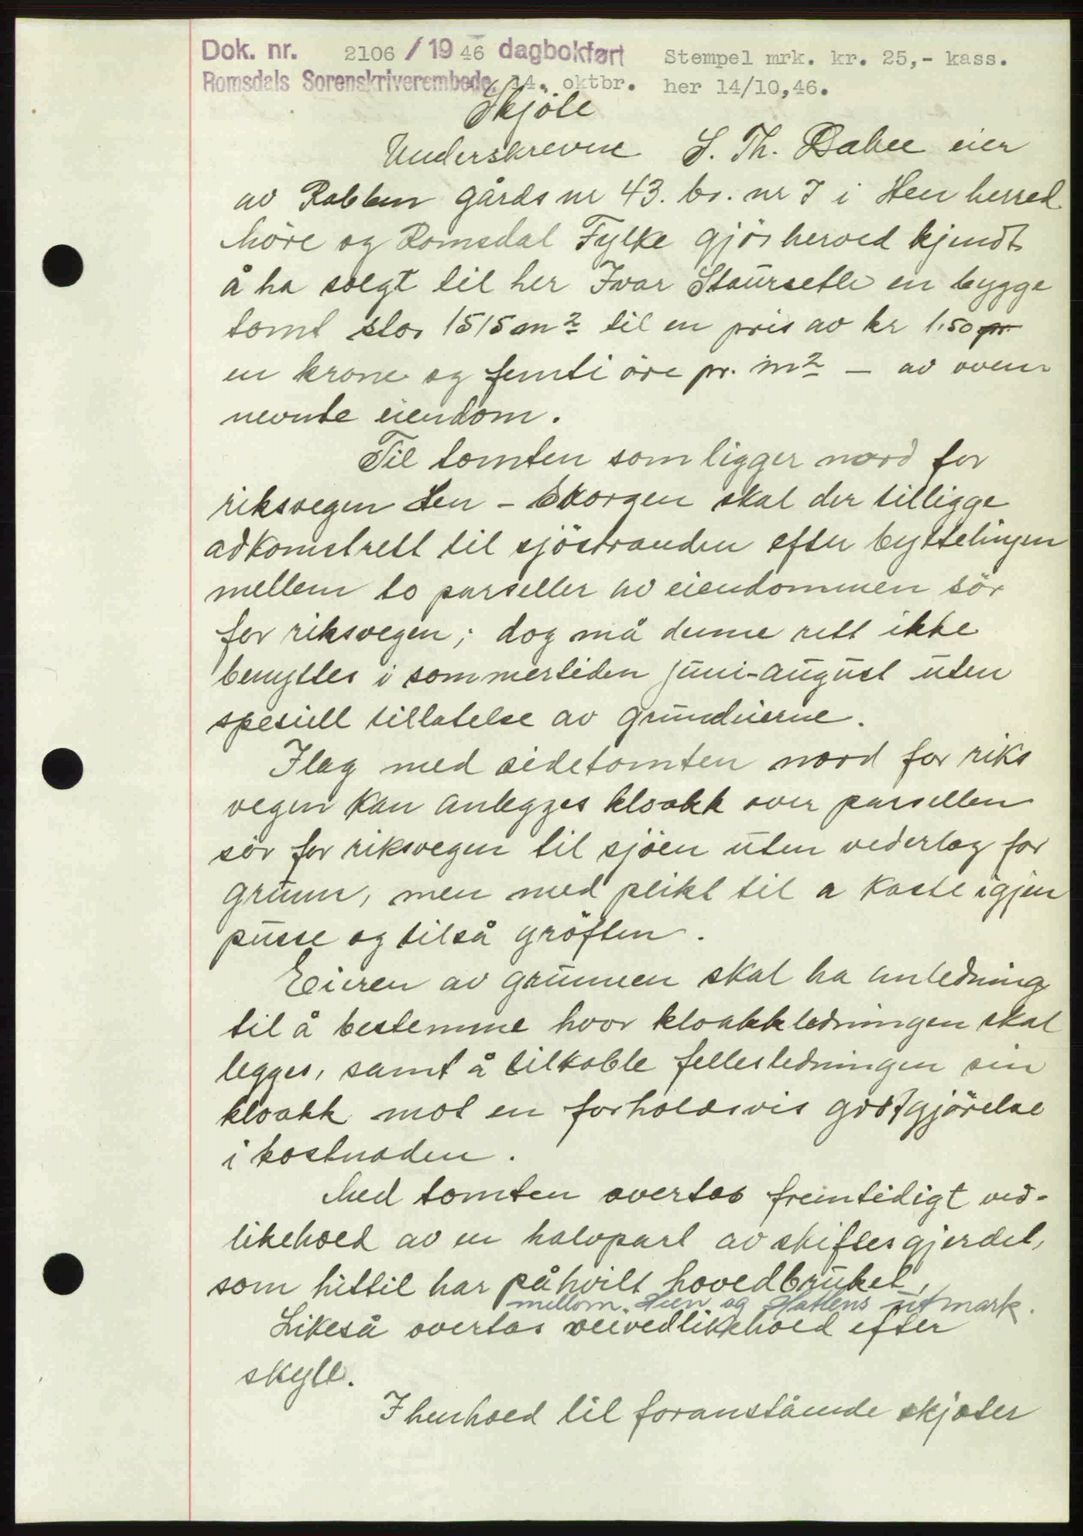 Dok. nr. 2106 / 1946 dagbokført Stempel mrk. kr. 25,- kass.
Romsdals Sorenskriverembede, 14. oktbr. her 14/10,46.
Skjöte
Underskrevne S. Th. Dahle eier
av Rabben gårds nr 43. br. nr 7 i Hen herred
Möre og Romsdal Fylke gjör herved kjendt
å ha solgt til her Ivar Staurseth en bygge
tomt stor 1515 m² til en pris av kr 1.50 pr
en krone og femti öre pr. m² – av oven-
nevnte eiendom.
Til tomten som ligger nord for
riksvegen Hen – Skorgen skal der tilligge
adkomstrett til sjöstranden efter byttelinjen
mellem to parseller av eiendommen sör
for riksvegen; dog må denne rett ikke
benyttes i sommertiden juni-august uten
spesiell tillatelse av grundeierne.
I lag med sidetomten nord for riks
vegen kan anlegges kloakk over parsellen
sör for riksvegen til sjöen uten vederlag for
grunn, men med plikt til a kaste igjen
pusse og tilså gröften.
Eieren av grunnen skal ha anledning
til å bestemme hvor kloakkledningen skal
legges, samt å tilkoble fellesledningen sin
kloakk mot en forholdsvis godtgjörelse
i kostnaden.
Med tomten overtas fremtidigt ved-
likehold av en halvpart av skiftesgjerdet,
som hittil har påhvilt hovedbruket,
mellom Hen og Hatlens utmark.
Likeså overtas veivedlikehold efter
skyld.
I henhold til foranstående skjöter